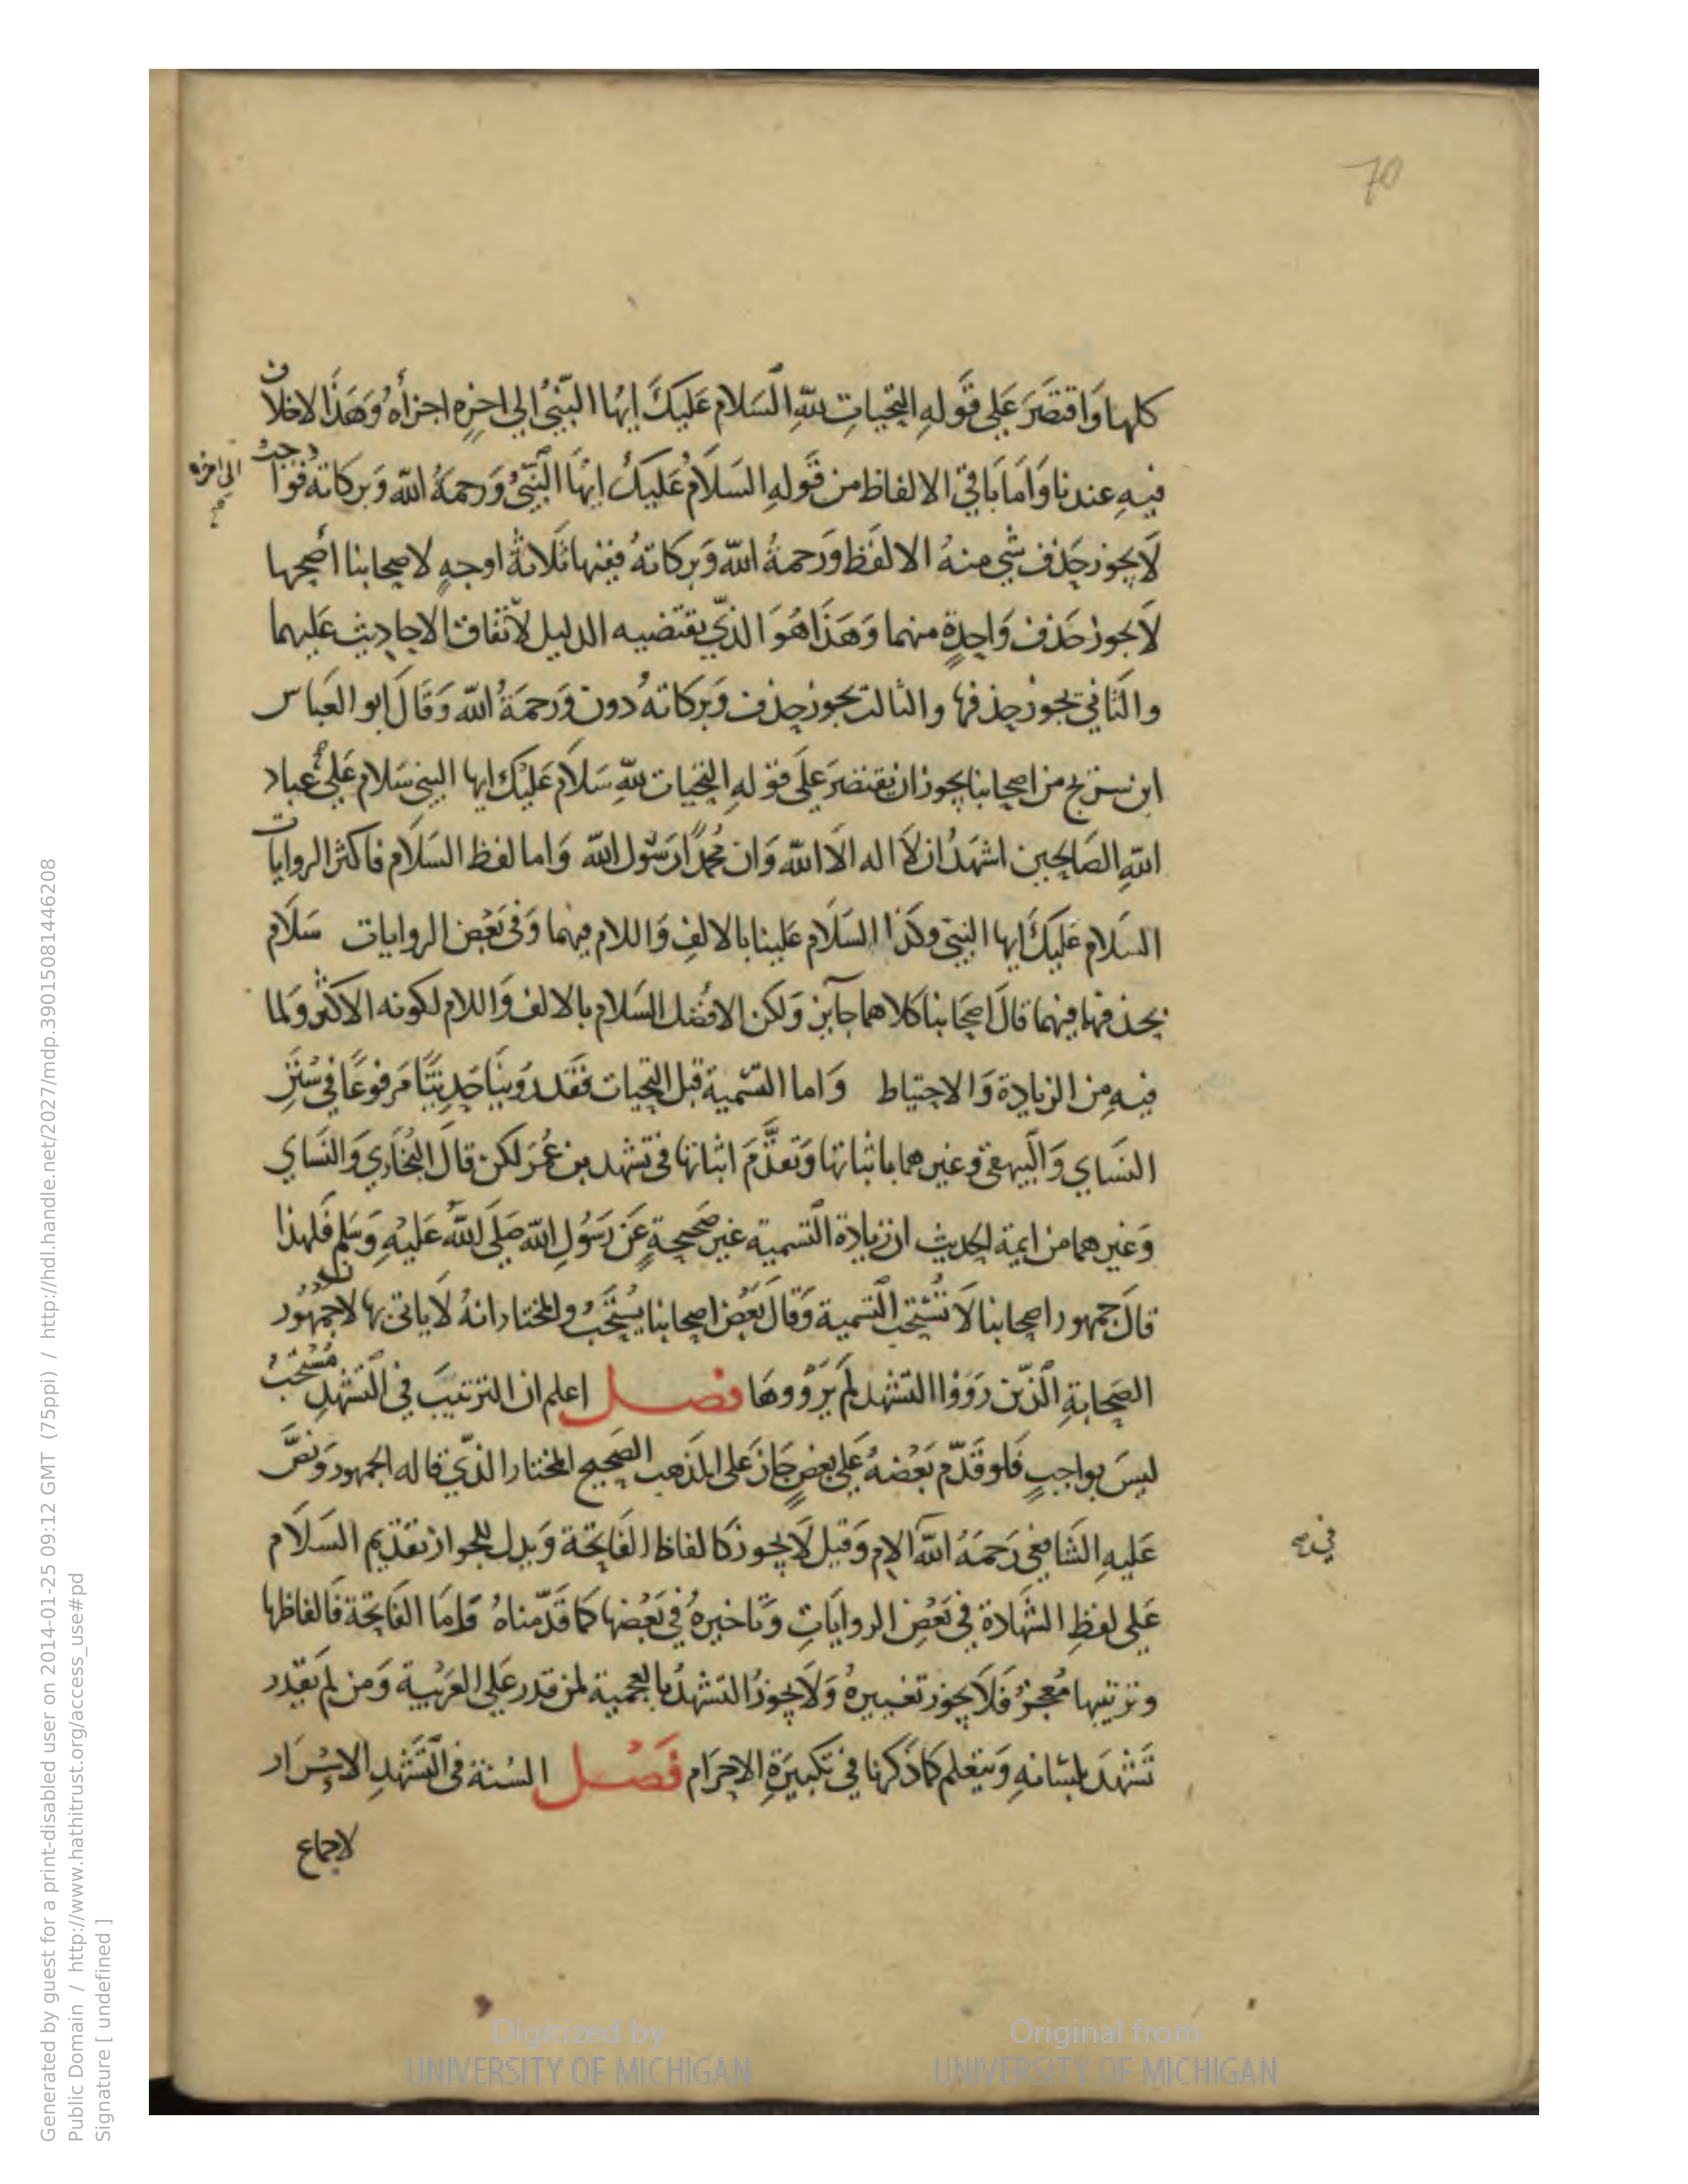 70
كلها وَاقتصَرَ عَلى قَولهِ التحياتِ للّهِ السَلام عَليكَ ايهُا النّبيُ الى اخِرِه اجزأهُ وَهَذَا لاخلاف
فيهِ عندنا وَامَا بَاقي الالفاظ من قَولهِ السَلاَمُ عَليكَ ايهَا النَّبيُّ وَرحمَةُ اللّه وَبركاتهُ فواجبٌ
الى اخره صح
لَا يجوز حَذف شي منهُ الا لفَظ وَرَحمةُ اللّه وَبركاتهُ ففيها ثَلَاثةُ اوجهٍ لاصحابنا أصحها
لَا يجوز حَذف وَاحِدةٍ منهما وَهَذَا هُوَ الذّي يقتضيه الدليل لاتّفاق الاحاديث عليهما
والثَاني يجوز حذفها والثالث يجوز حذف وَبركاتهُ دون وَرحمَةُ اللّه وَقَالَ ابو العَباس
ابن سريج من اصحابنا يجوز ان يقتصَرَ عَلى قولهِ التحيات للّهِ سَلاَم عَليْكَ ايها النبي سَلام عَلى عباد
اللّهِ الصَالحين اشهَدُ ان لاَ اله الاَ اللّه وَان محمدًا رَسُول اللّه وَاما لفظ السَلَام فاكثر الروايات
السَلام عَليكَ ايها النبي وكذا السَلَام علينا بالالفِ وَاللام فيهما وَفى بَعْض الروايات سَلَام
بحذفها فيهما قالَ اصحَابنا كلاهما جآيز وَلكن الافضل السَلام بالالف وَاللام لكونه الاكثر وَلما
فيهِ من الزيادة وَالاحتياط وَاما التسَمية قبل التحيات فقَد روينَا حَديثًا مَرفوعًا في سُنَنِ
النسَاي وَالبيهقي وغيرهما باثباتها وَتقدَّمَ اثباتها فى تشهد بن عُمَرَ لكن قالَ البُخَاري وَالنسَاي
وَغيرهما من ايمة الحديث ان زيادة التسمية غير صَحيحةٍ عَن رَسُولِ اللّه صَلى اللّهُ عَليهِ وَسَلم فلهذا
قالَ جمهور اصحابنا لَا تُسْتحَب التسَمية وَقالَ بَعْض اصحابنا يسُتحَبُ والمختار انهُ لَا ياتى بها لان جمُهُور
الصَحابةِ الّذين رَوَوْا التشهد لم يَرْووهَا فصل اعلم ان الترتيبَ في التشهدِ مُسْتَحَبٌ
ليسَ بواجبٍ فَلو قَدّم بَعْضهُ عَلى بعضٍ جَازَ عَلى المذهب الصَحيح المختار الذّي قاله الجمهور وَنصَّ
عَليهِ الشافعي رَحمَهُ اللّه الام وَقيل لَا يجوز كالفاظ الفَاتحَة وَيدل للجواز تقَديم السَلَام
في صح
عَلى لفظِ الشَهادة في بَعْضِ الروايَاتِ وَتاخيرهُ في بَعْضها كما قَدّمناهُ وَامَا الفَاتحَة فَالفاظها
وترتيبها مُعجزٌ فلَا يجوز تغييرهُ وَلَا يجوزُ التشهُد بالعجمية لمن قدر عَلى العَرَبية وَمن لم يَقدر
تشَهدَ بلسَانهِ وَيتعلم كما ذَكرنا في تكبيرَةِ الاحرَام فصَل السُنة فى التَشهدِ الاسِرَار
لاجماع
Generated by guest for a print-disabled user on 2014-01-25 09:12 GMT (75ppi) / http://hdl.handle.net/2027/mdp.39015081446208
Public Domain / http://www.hathitrust.org/access_use#pd
Signature [ undefined ]
Digitized by
UNIVERSITY OF MICHIGAN
Original from
UNIVERSITY OF MICHIGAN